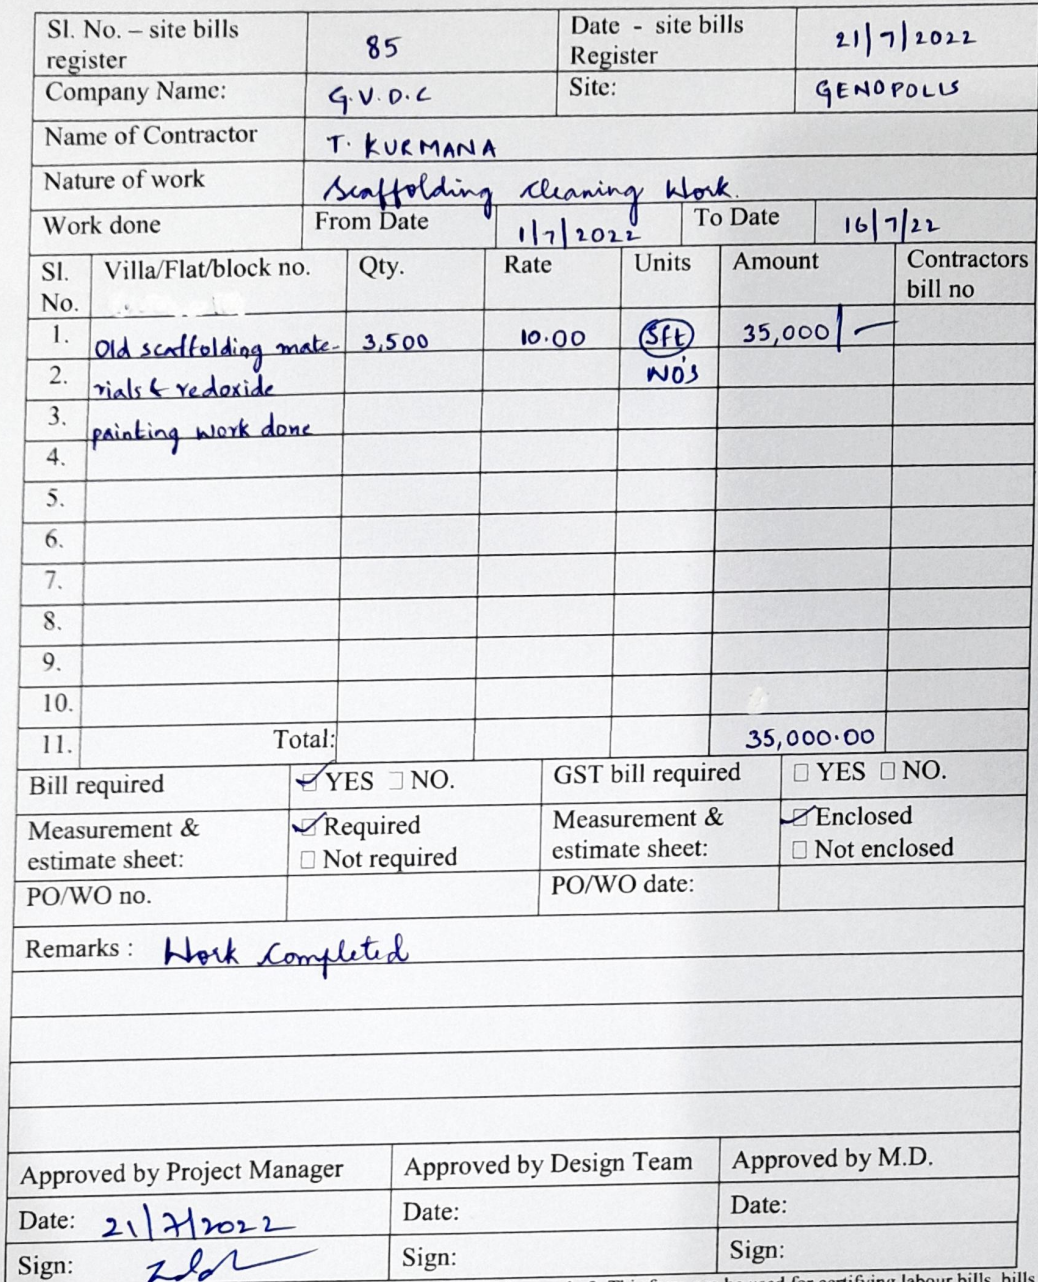 Sl. No. – site bills register 85 Date - site bills Register 21/7/2022
Company Name: G.V.D.C Site: GENOPOLIS
Name of Contractor T. KURMANA
Nature of work Scaffolding cleaning Work.
Work done From Date 1/7/2022 To Date 16/7/22
Sl. No. Villa/Flat/block no. Qty. Rate Units Amount Contractors bill no
1. Old scaffolding mate- 3,500 10.00 Sft 35,000/-
2. rials & redoxide NO'S
3. painting work done
4.
5.
6.
7.
8.
9.
10.
11. Total: 35,000.00
Bill required ☑ YES ☐ NO. GST bill required ☐ YES ☐ NO.
Measurement & estimate sheet: ☑ Required ☐ Not required Measurement & estimate sheet: ☑ Enclosed ☐ Not enclosed
PO/WO no. PO/WO date:
Remarks : Work Completed
Approved by Project Manager Approved by Design Team Approved by M.D.
Date: 21/7/2022 Date: Date:
Sign: Sign: Sign: